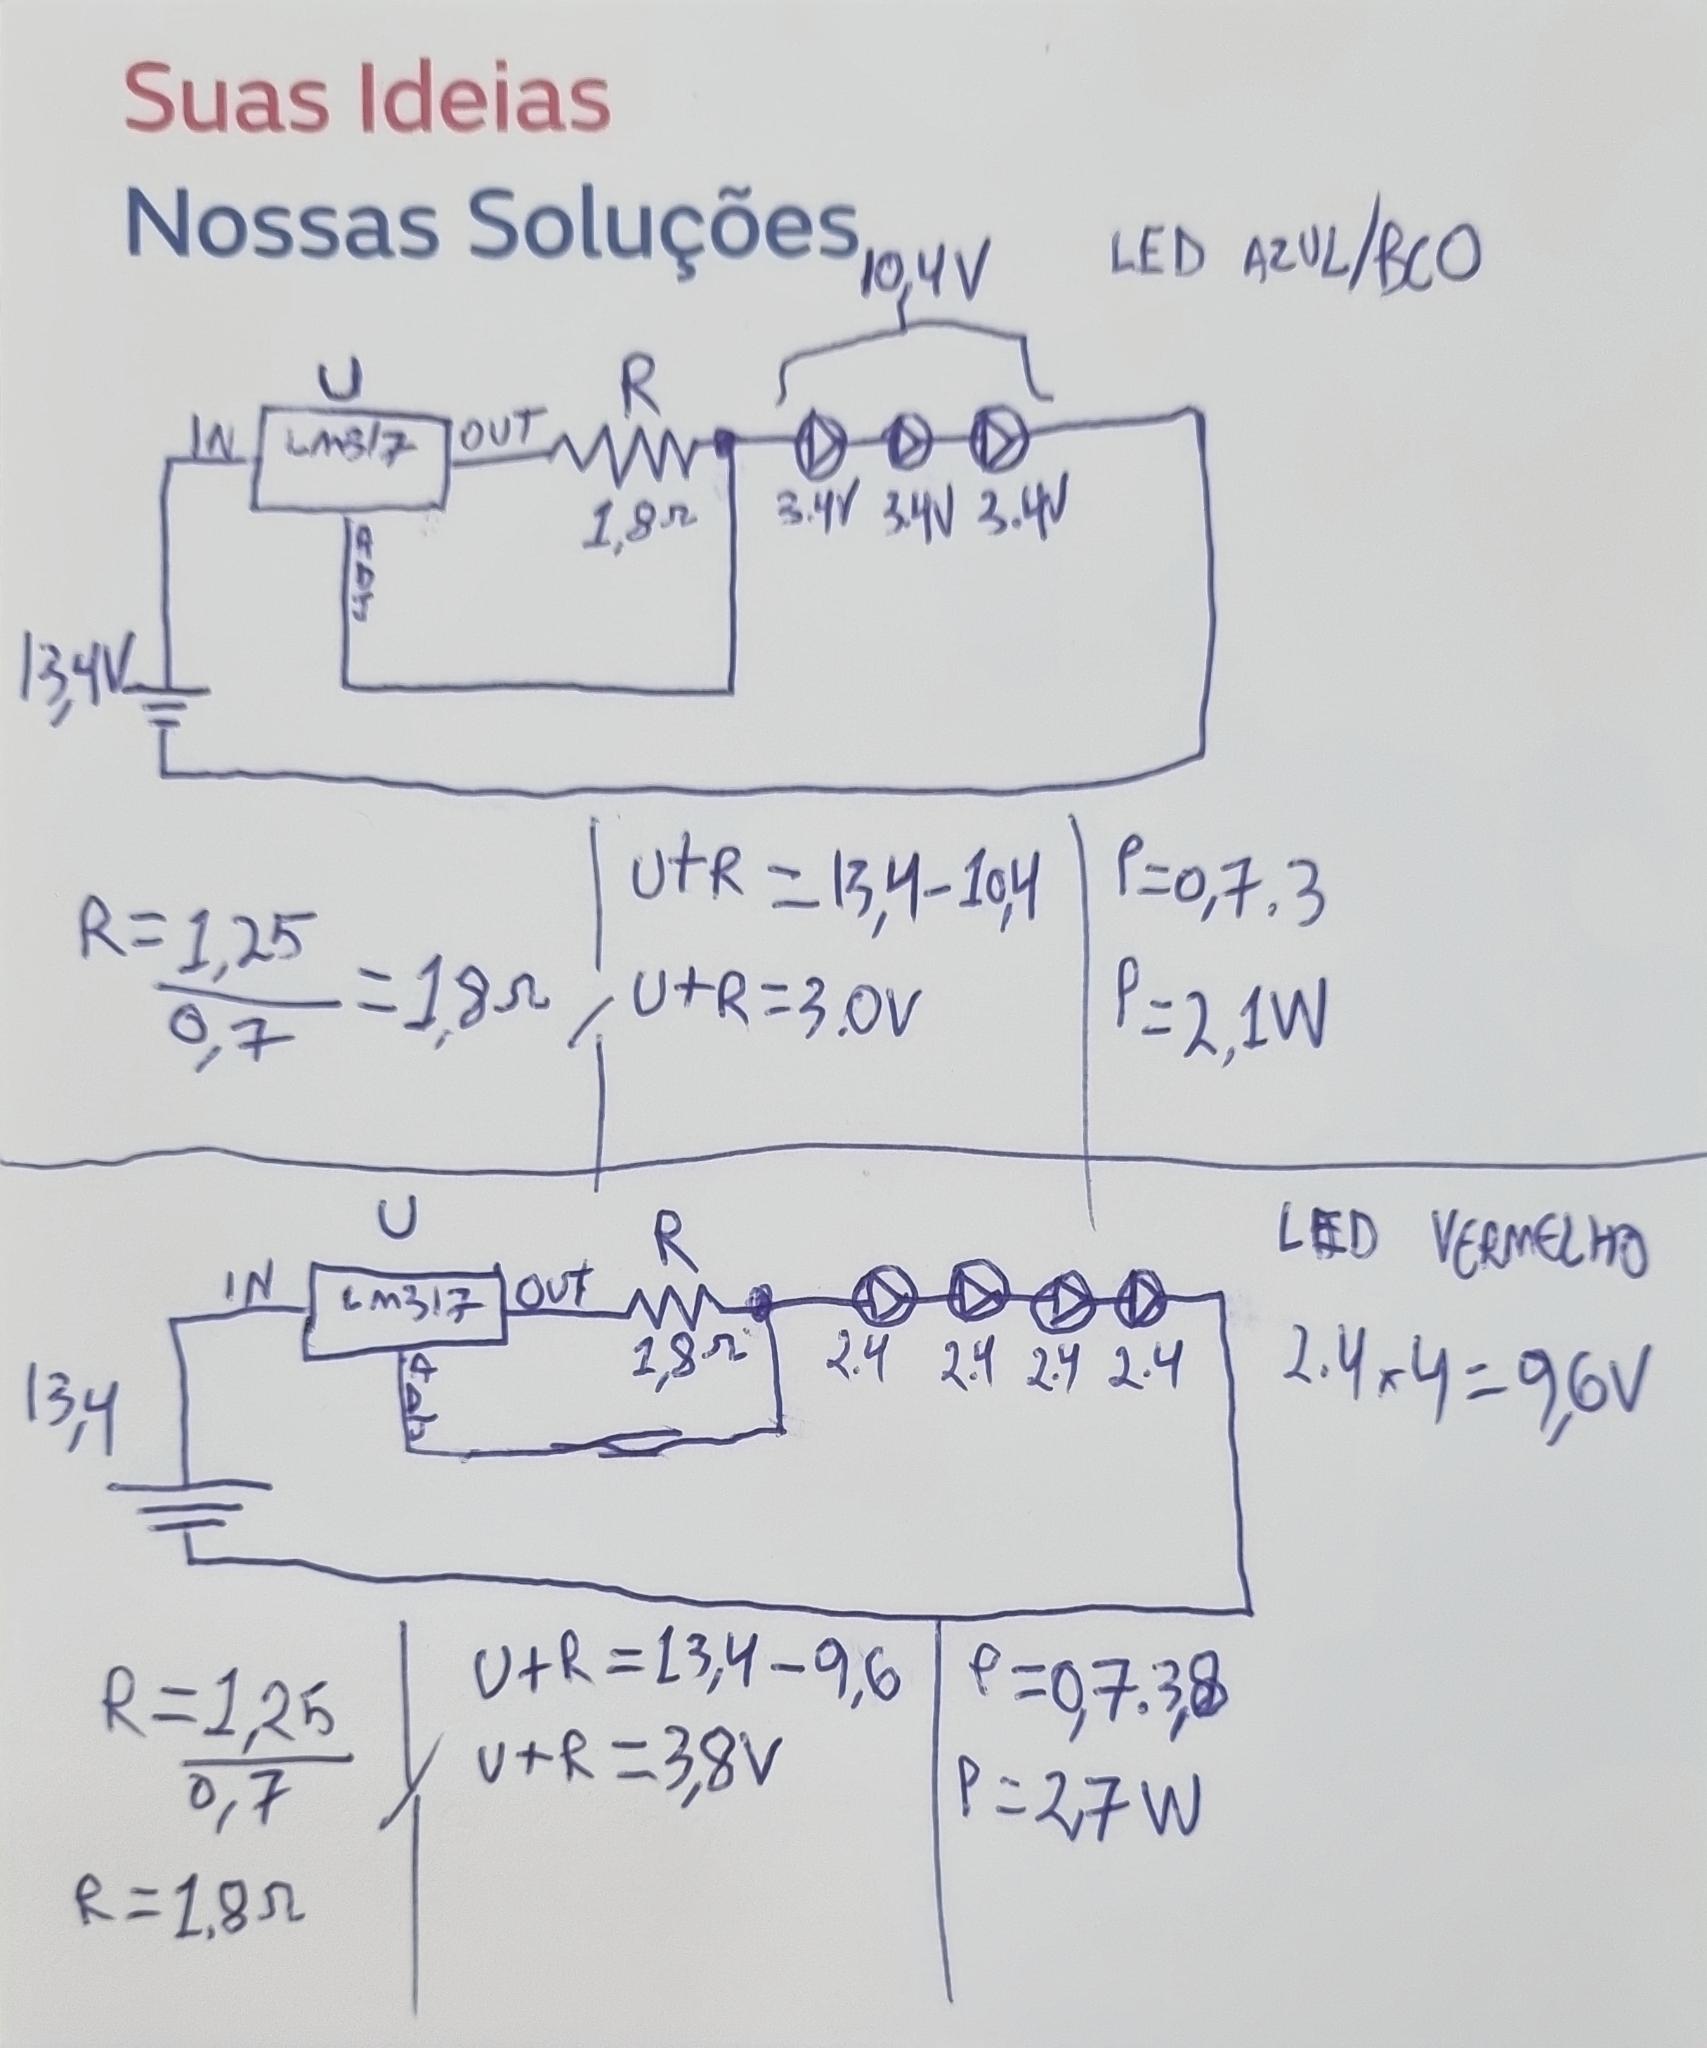 Suas Ideias
Nossas Soluções
10,4V
LED AZUL/BCO
U
R
IN
LM317
OUT
1,8Ω
3.4V 3.4V 3.4V
ADJ
13,4V
R=1,25
0,7
=1,8Ω
U+R=13,4-10,4
U+R=3.0V
P=0,7.3
P=2,1W
U
R
LED VERMELHO
IN
LM317
OUT
1,8Ω
2.4 2.4 2.4 2.4
2.4x4=9,6V
ADJ
13,4
R=1,25
0,7
R=1,8Ω
U+R=13,4-9,6
U+R=3,8V
P=0,7.3,8
P=2,7W